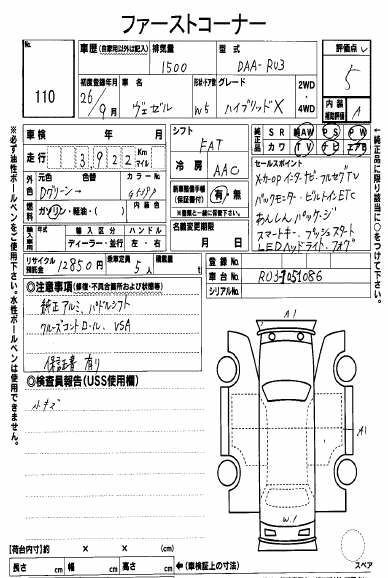 ファーストコーナー
No.
110
車歴 (自家用以外は記入)
排気量
1500
型式
DAA-RU3
評価点
5
初度登録年月
26/9月
車名
ヴェゼル
形状・ドア数
W5
グレード
ハイブリッドX
2WD
・
4WD
内装
補助評価
A
車検 年 月
シフト
FAT
純正品
SR 純AW PS PW
カワ TV ナビ エアB
走行
3922
Km
マイル
冷房
AAC
セールスポイント
メーカーOPインターナビ・フルセグTV
バックモニター・ビルトインETC
あんしんパッケージ
スマートキー・プッシュスタート
LEDヘッドライト、フォグ
外色
元色
Dグリーン→
色替
カラーNo.
燃料
ガソリン・軽油・( )
内装色
新車時備付書
(保証書付)
有・無
※書類と一緒に提出
名義変更期限
月 日
輸入区分
ディーラー・並行
ハンドル
左・右
リサイクル
預託金
12850円
乗車定員
5人
積載量
t
登録No.
車台No.
RU3-1051086
シリアルNo.
◎注意事項 (修復・不具合箇所および状態等)
純正アルミ、パドルシフト
クルーズコントロール、VSA
保証書有り
◎検査員報告(USS使用欄)
小キズ
A1
A1
W1
スペア
[荷台内寸] × × (cm)
長さ cm 幅 cm 高さ cm
←(車検証上の寸法)
※必ず油性ボールペンをご使用下さい。水性ボールペンは使用できません。
←純正品に限り該当に○をつけて下さい。